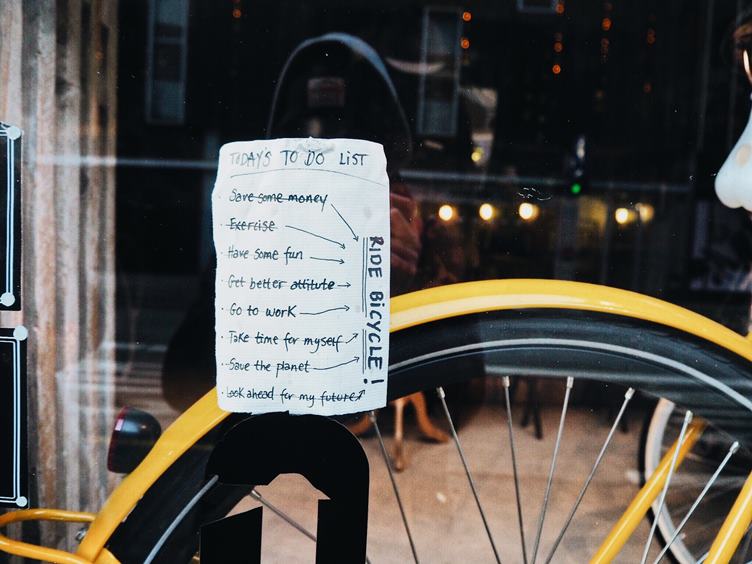 TODAY'S TO DO LIST
Save some money
Exercise
Have some fun
Get better attitute
Go to work
Take time for myself
Save the planet
Look ahead for my future
RIDE BICYCLE!